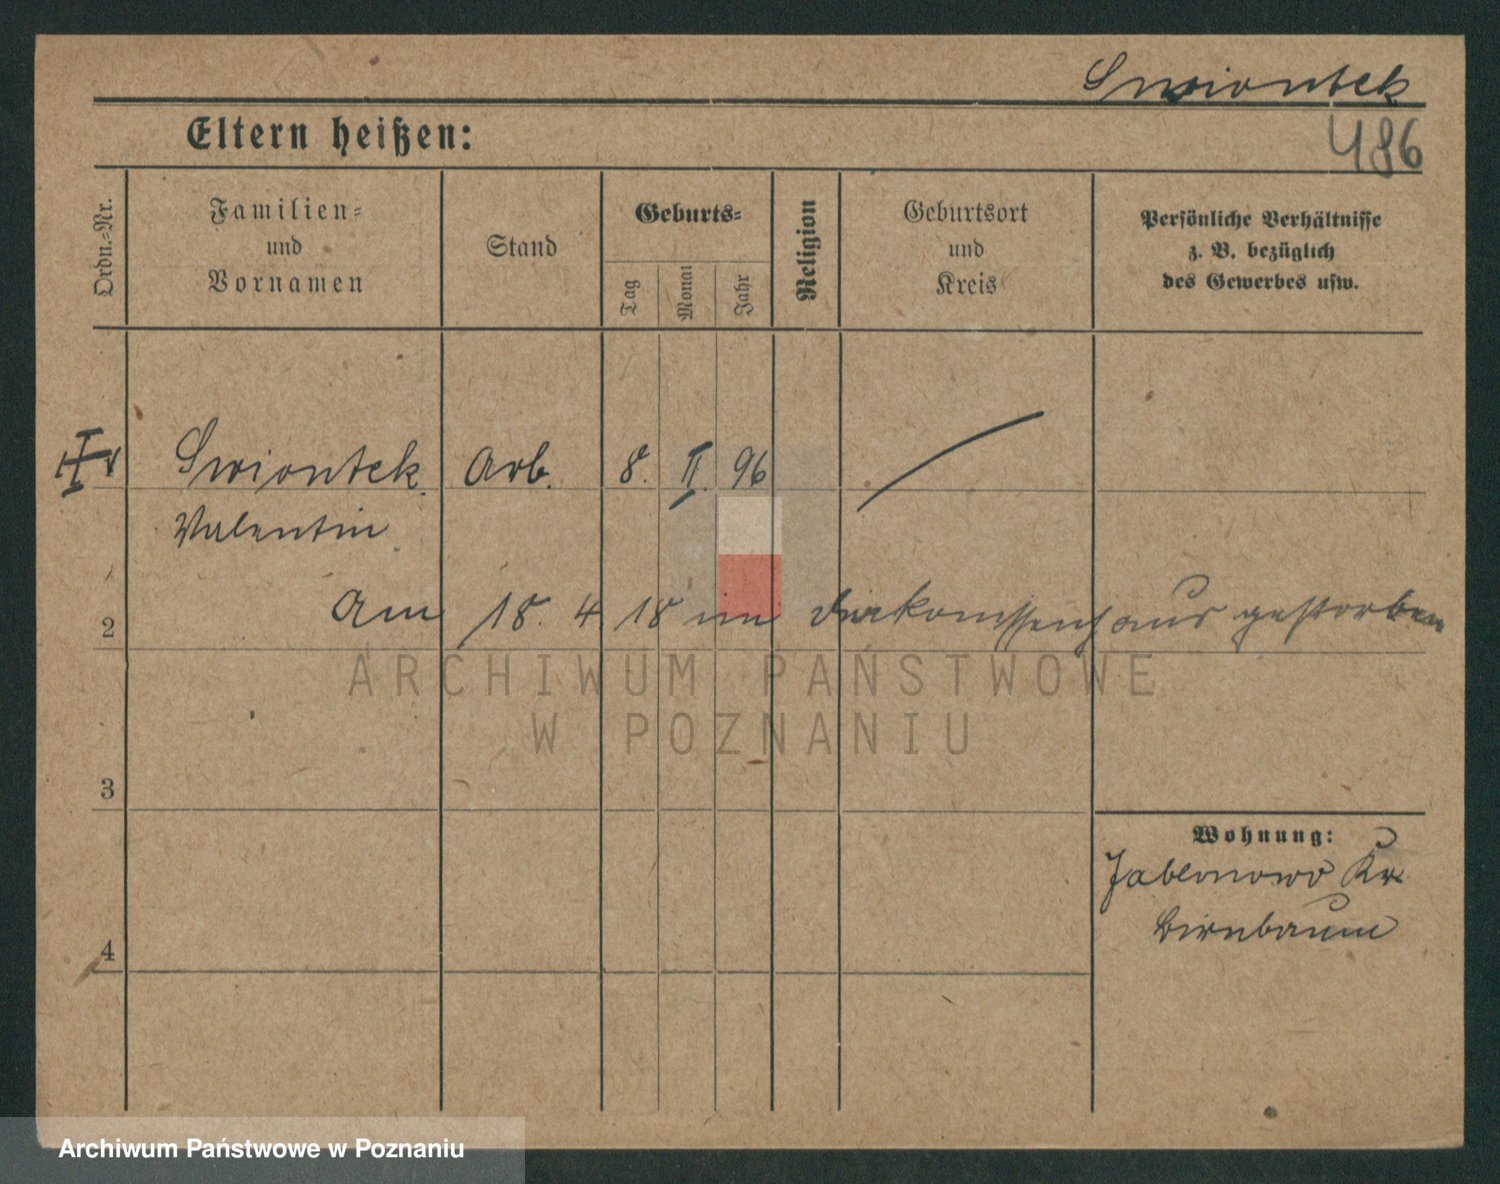 Swiontek
486
Eltern heißen:
Ordn.-Nr.
Familien-
und
Vornamen
Stand
Geburts-
Tag
Monat
Jahr
Religion
Geburtsort
und
Kreis
Persönliche Verhältnisse
z. B. bezüglich
des Gewerbes usw.
Swiontek Arb. 8. II. 96
Valentin
2 Am 18. 4 18 im Diakonissenhaus gestorben
ARCHIWUM PAŃSTWOWE
W POZNANIU
3
Wohnung:
Jablonowo Kr.
Birnbaum
4
Archiwum Państwowe w Poznaniu